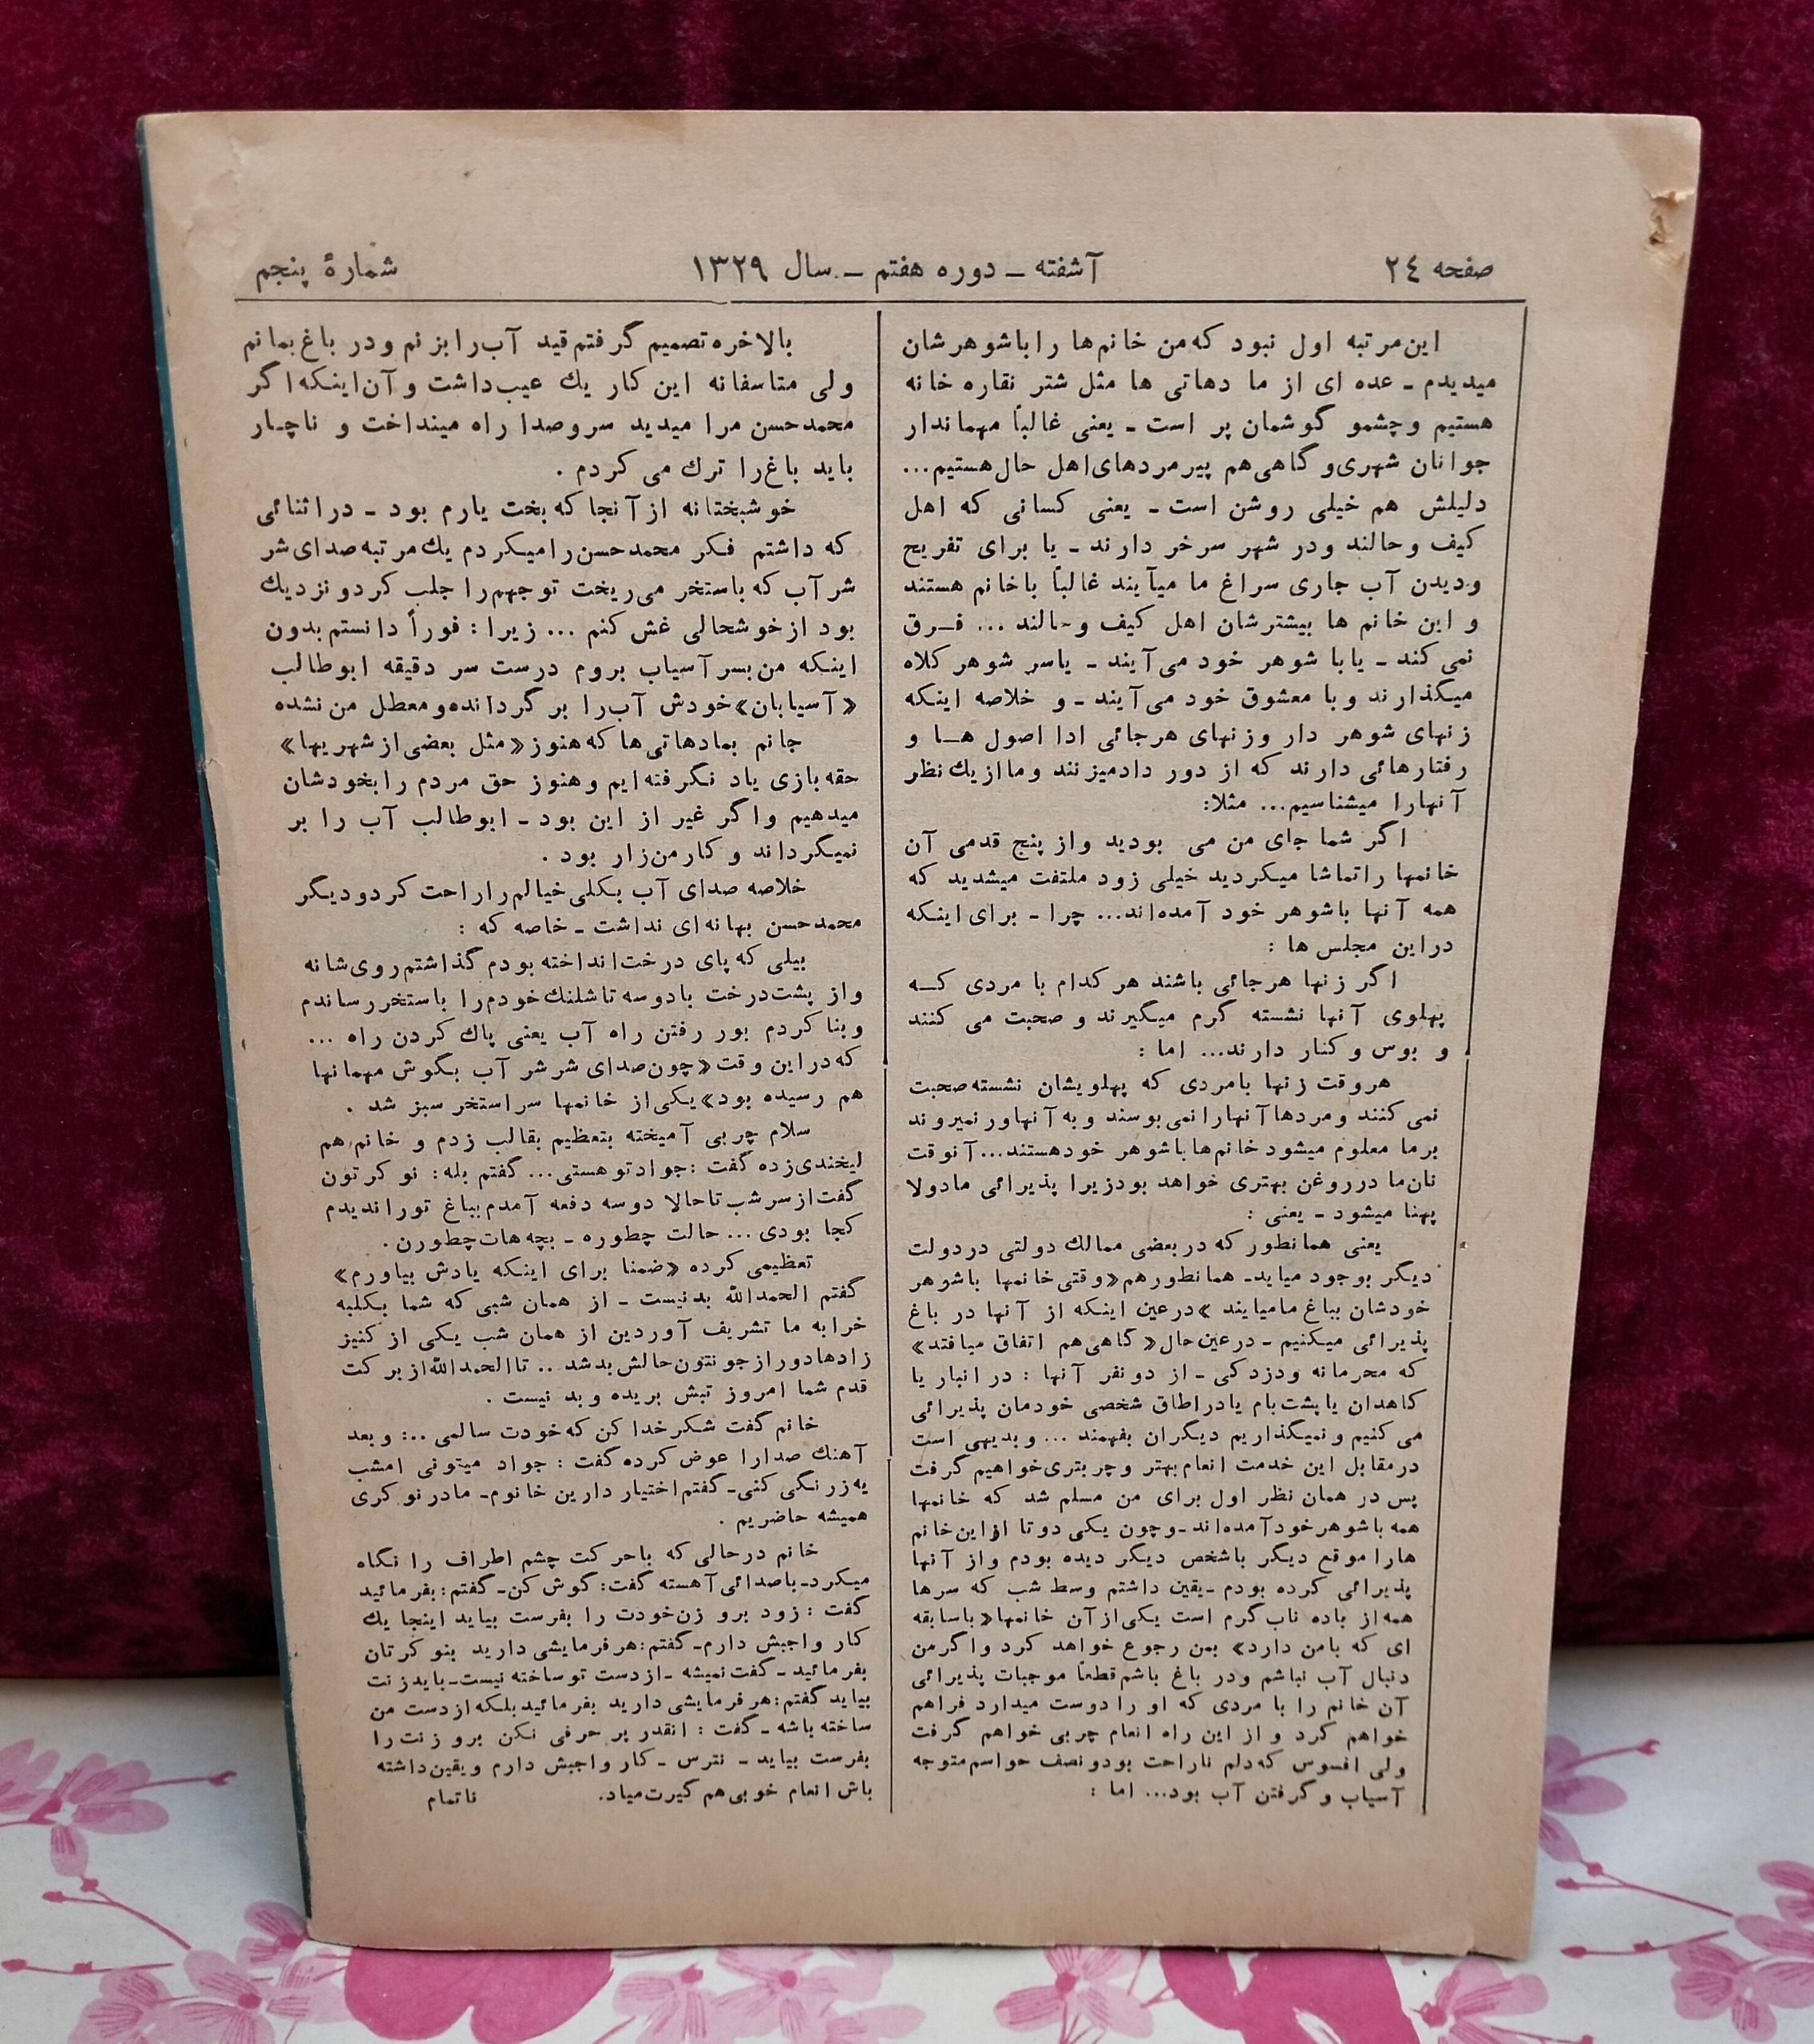 صفحه ٢٤
آشفته ـ دوره هفتم ـ سال ١٣٢٩
شمارهٔ پنجم
این مرتبه اول نبود که من خانم‌ها را با شوهرشان
میدیدم ـ عده ای از ما دهاتی ها مثل شتر نقاره خانه
هستیم و چشمو گوشمان پر است ـ یعنی غالباً مهماندار
جوانان شهری و گاهی هم پیرمردهای اهل حال هستیم...
دلیلش هم خیلی روشن است ـ یعنی کسانی که اهل
کیف و حالند و در شهر سرخر دارند ـ یا برای تفریح
و دیدن آب جاری سراغ ما میآیند غالباً با خانم هستند
و این خانم ها بیشترشان اهل کیف و حالند ... فـرق
نمی کند ـ یا با شوهر خود می آیند ـ یا سر شوهر کلاه
میگذارند و با معشوق خود می آیند ـ و خلاصه اینکه
زنهای شوهر دار و زنهای هرجائی ادا اصول هـا و
رفتارهائی دارند که از دور داد میزنند و ما از یك نظر
آنهارا میشناسیم... مثلا:
اگر شما جای من می بودید و از پنج قدمی آن
خانمها را تماشا میکردید خیلی زود ملتفت میشدید که
همه آنها با شوهر خود آمده‌اند... چرا ـ برای اینکه
در این مجلس ها :
اگر زنها هرجائی باشند هر کدام با مردی کـه
پهلوی آنها نشسته گرم میگیرند و صحبت می کنند
و بوس و کنار دارند... اما :
هر وقت زنها با مردی که پهلویشان نشسته صحبت
نمی کنند و مردها آنها را نمی بوسند و به آنها ور نمیروند
بر ما معلوم میشود خانم‌ها با شوهر خود هستند... آنوقت
نان ما در روغن بهتری خواهد بود زیرا پذیرائی ما دولا
پهنا میشود ـ یعنی :
یعنی همانطور که در بعضی ممالك دولتی در دولت
دیگر بوجود میاید ـ همانطور هم «وقتی خانمها با شوهر
خودشان بباغ ما میایند» در عین اینکه از آنها در باغ
پذیرائی میکنیم ـ در عین حال «گاهی هم اتفاق میافتد»
که محرمانه و دزدکی ـ از دو نفر آنها : در انبار یا
کاهدان یا پشت بام یا در اطاق شخصی خودمان پذیرائی
می کنیم و نمیگذاریم دیگران بفهمند ... و بدیهی است
در مقابل این خدمت انعام بهتر و چربتری خواهیم گرفت
پس در همان نظر اول برای من مسلم شد که خانمها
همه با شوهر خود آمده‌اند ـ و چون یکی دو تا از این خانم
هارا موقع دیگر با شخص دیگر دیده بودم و از آنها
پذیرائی کرده بودم ـ یقین داشتم وسط شب که سرها
همه از باده ناب گرم است یکی از آن خانمها «با سابقه
ای که با من دارد» بمن رجوع خواهد کرد و اگر من
دنبال آب نباشم و در باغ باشم قطعاً موجبات پذیرائی
آن خانم را با مردی که او را دوست میدارد فراهم
خواهم کرد و از این راه انعام چربی خواهم گرفت
ولی افسوس که دلم ناراحت بود و نصف حواسم متوجه
آسیاب و گرفتن آب بود... اما :
بالاخره تصمیم گرفتم قید آب را بزنم و در باغ بمانم
ولی متاسفانه این کار یك عیب داشت و آن اینکه اگر
محمد حسن مرا میدید سر و صدا راه مینداخت و ناچـار
باید باغ را ترك می کردم .
خوشبختانه از آنجا که بخت یارم بود ـ در اثنائی
که داشتم فکر محمد حسن را میکردم یك مرتبه صدای شر
شر آب که باستخر می ریخت توجهم را جلب کرد و نزدیك
بود از خوشحالی غش کنم ... زیرا : فوراً دانستم بدون
اینکه من بسر آسیاب بروم درست سر دقیقه ابوطالب
«آسیابان» خودش آب را بر گردانده و معطل من نشده
جانم بما دهاتی ها که هنوز «مثل بعضی از شهریها»
حقه بازی یاد نگرفته ایم و هنوز حق مردم را بخودشان
میدهیم و اگر غیر از این بود ـ ابوطالب آب را بر
نمیگرداند و کار من زار بود .
خلاصه صدای آب بکلی خیالم را راحت کرد و دیگر
محمد حسن بهانه ای نداشت ـ خاصه که :
بیلی که پای درخت انداخته بودم گذاشتم روی شانه
و از پشت درخت با دو سه تا شلنك خودم را باستخر رساندم
و بنا کردم بور رفتن راه آب یعنی پاك کردن راه ...
که در این وقت «چون صدای شر شر آب بگوش مهمانها
هم رسیده بود» یکی از خانمها سر استخر سبز شد .
سلام چربی آمیخته بتعظیم بقالب زدم و خانم هم
لبخندی زده گفت : جواد تو هستی... گفتم بله : نو کرتون
گفت از سر شب تا حالا دو سه دفعه آمدم بباغ تو را ندیدم
کجا بودی ... حالت چطوره ـ بچه هات چطورن .
تعظیمی کرده «ضمنا برای اینکه یادش بیاورم»
گفتم الحمدالله بد نیست ـ از همان شبی که شما بکلبه
خرابه ما تشریف آوردین از همان شب یکی از کنیز
زادها دور از جونتون حالش بد شد .. تا الحمدالله از برکت
قدم شما امروز تبش بریده و بد نیست .
خانم گفت شکر خدا کن که خودت سالمی ..: و بعد
آهنك صدارا عوض کرده گفت : جواد میتونی امشب
یه زرنگی کنی ـ گفتم اختیار دارین خانوم ـ ما در نوکری
همیشه حاضریم .
خانم در حالی که با حرکت چشم اطراف را نگاه
میکرد ـ با صدائی آهسته گفت : گوش کن ـ گفتم : بفرمائید
گفت : زود برو زن خودت را بفرست بیاید اینجا یك
کار واجبش دارم ـ گفتم : هر فرمایشی دارید بنو کرتان
بفرمائید ـ گفت نمیشه ـ از دست تو ساخته نیست ـ باید زنت
بیاید گفتم : هر فرمایشی دارید بفرمائید بلکه از دست من
ساخته باشه ـ گفت : انقدر پر حرفی نکن برو زنت را
بفرست بیاید ـ نترس ـ کار واجبش دارم و یقین داشته
باش انعام خوبی هم گیرت میاد. ناتمام